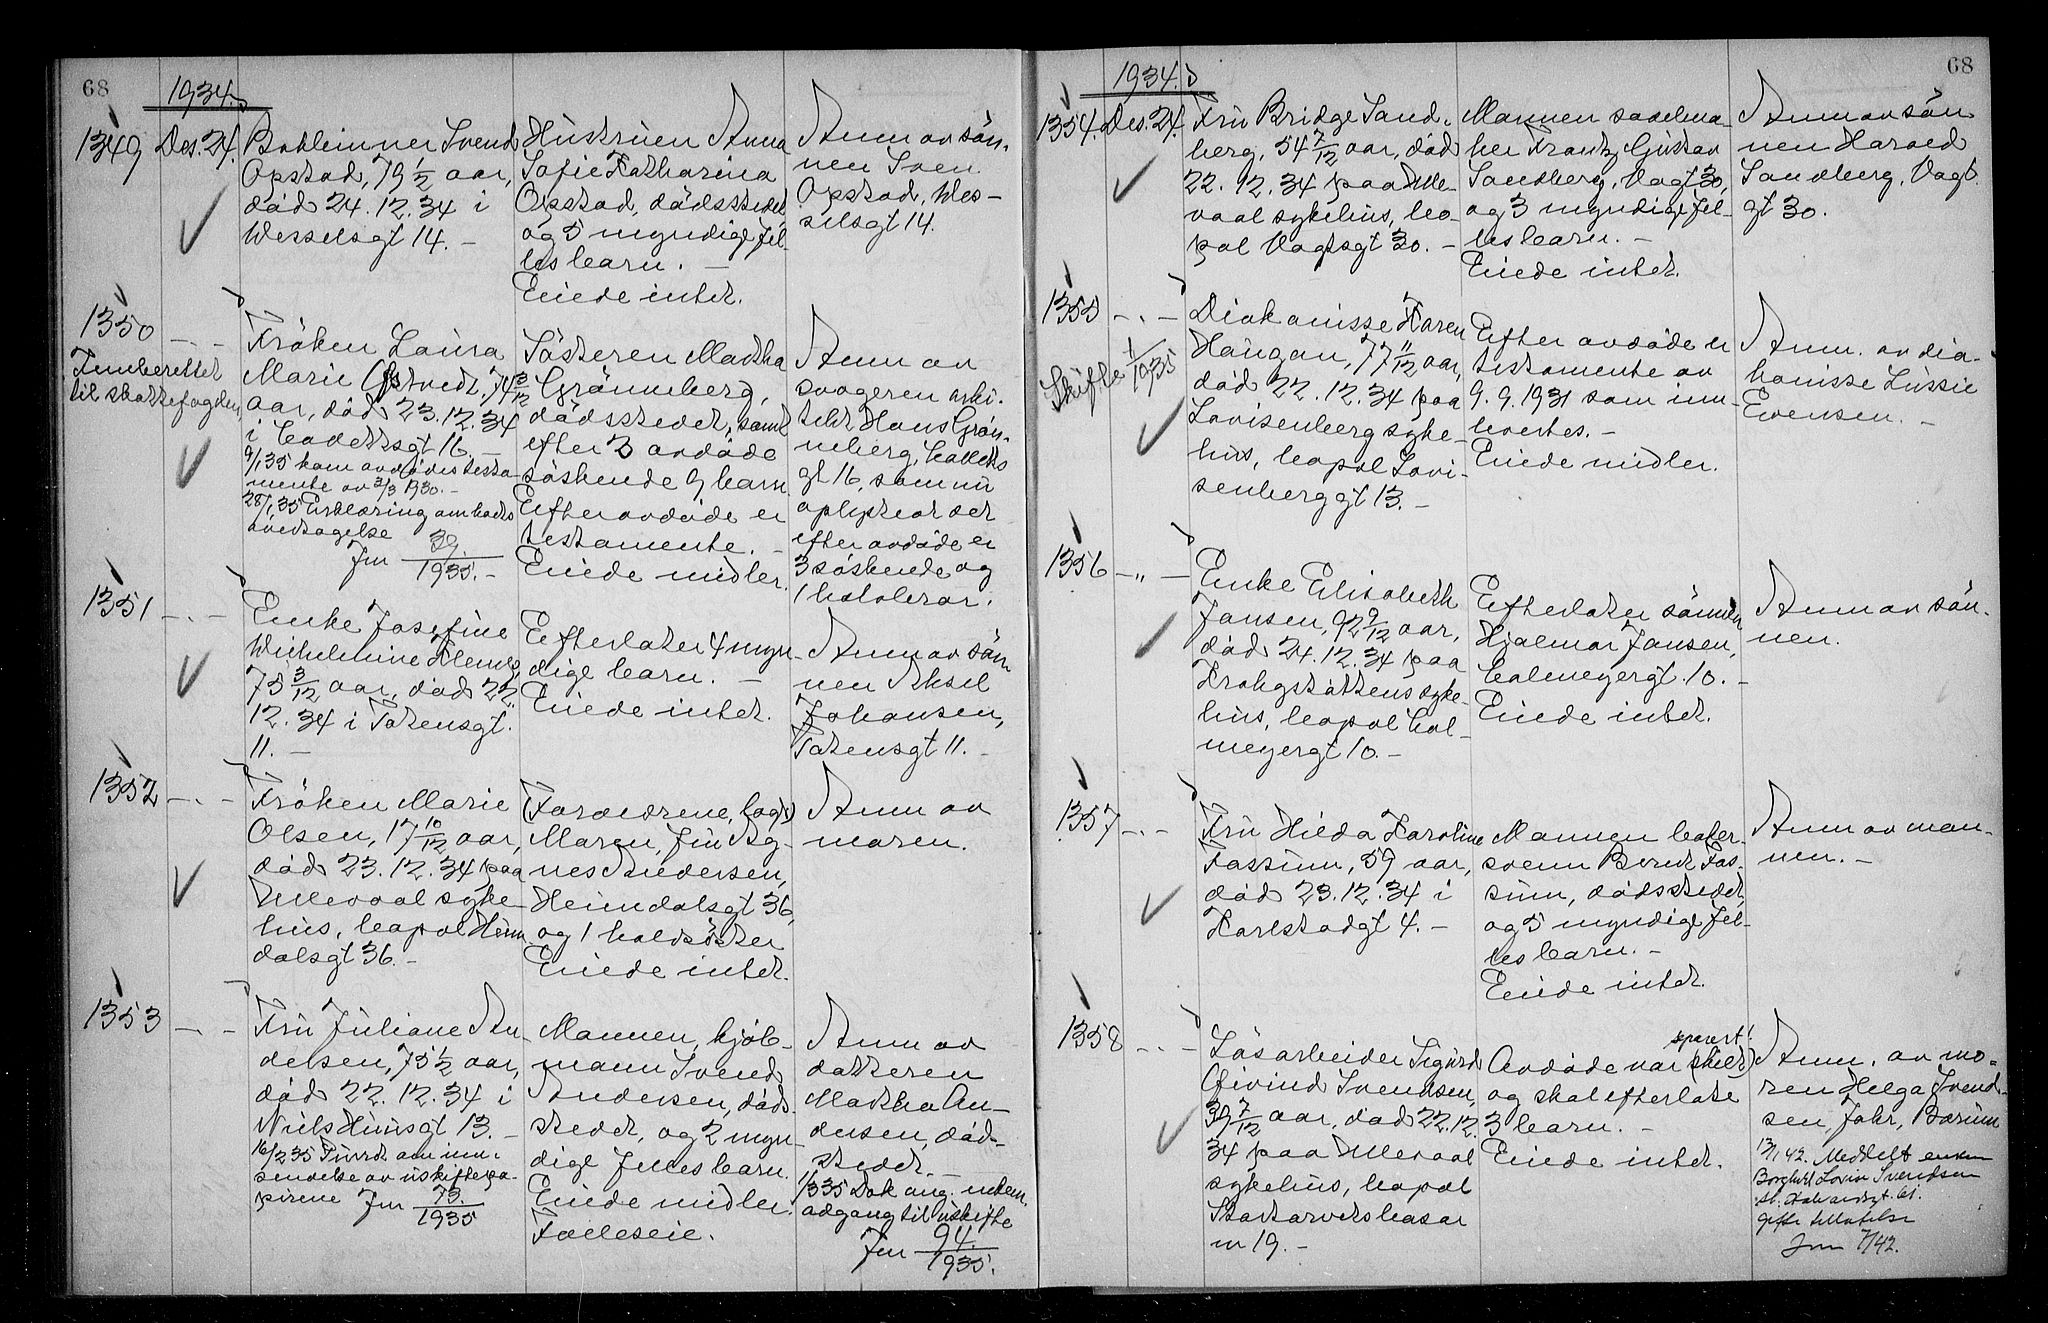 68
1934.
1349
Des. 24.
Svend
Opstad, 79 1/2 aar,
död 24.12.34 i
Wesselsgt 14. –
Hustruen Anna
Sofie Katharina
Opstad, dödsstedet
og 5 myndige fel-
les barn. –
Eiede intet.
Anm av sön-
nen Sven
Opstad, Wes-
selsgt 14.
1350
Fremberettet
til skattefogden
Fröken Laura
Marie 74 3/12
aar, död 23.12.34
i 16. –
9/1 35 kom avdödes testa-
mente av 3/3 1930. –
28/1 35 Erklæring om
Jnr 39/1935. –
Sösteren Martha
Grönneberg,
dödsstedet, samt
efter 3 avdöde
söskende 9 barn.
Efter avdöde er
testamente. –
Eiede midler.
Anm av
svogeren arki-
tekt Hans Grön-
neberg,
gt 16, som nu
oplyser at det
efter avdöde er
3 söskende og
1 halvbror.
1351
Enke Josefine
Wilhelmine
75 3/12 aar, död 22.
12.34 i Totensgt.
11. –
Efterlater 4 myn-
dige barn. –
Eiede intet.
Anm av sön
nen Aksel
Johansen,
Totensgt 11. –
1352
Fröken Marie
Olsen, 17 10/12 aar,
död 23.12.34 paa
Ullevaal syke-
hus, bopæl Heim
dalsgt 36. –
(Forældrene, )
Moren, fru Ag-
nes Andersen,
Heimdalsgt 36,
og 1 halvsöster
Eiede intet.
Anm av
moren.
1353
Fru Juliane An
dersen, 75 1/2 aar,
död 22.12.34 i
Niels Huusgt 13. –
16/2 35 Purret om inn-
sendelse av uskiftepa-
pirene Jnr 73./1935
Mannen, kjöb-
mann Svend
Andersen, döds
stedet, og 2 myn-
dige felles barn.
Eiede midler.
Fælleseie.
Anm av
datteren
Martha An-
dersen, död-
stedet. –
1/3 35 Dok ang. enkem.
adgang til uskifte
Jnr 94./1935.
68
1934.
1354.
Des. 24.
Fru Bridge Sand-
berg, 54 7/12 aar, död
22.12.34 paa Ulle-
vaal sykehus, bo-
pæl Vogtsgt 30. –
Mannen sadelma-
ker Frantz Gustav
Sandberg, Vogtsgt 30,
og 3 myndige fel-
les barn. –
Eiede intet.
Anm av sön
nen Harald
Sandberg, Vogts
gt 30.
1355
Skifte 1/1935
Diakonisse Karen
Haugan, 77 11/12 aar,
död 22.12.34 paa
Lovisenberg syke-
hus, bopæl Lovi-
senberggt 13. –
Efter avdöde er
testamente av
9.9.1931 som inn-
leveres. –
Eiede midler.
Anm. av dia-
konisse Lussie
Evensen. –
1356
Enke Elisabeth
Jansen, 92 9/12 aar,
död 24.12.34 paa
Krohgstöttens syke-
hus, bopæl Cal-
meyergt 10. –
Efterlater sönnen
Hjalmar Jansen,
Calmeyergt. 10. –
Eiede intet.
Anm av sön-
nen.
1357
Fru Hilda Karoline
Fossum, 59 aar,
död 23.12.34 i
Karlstadgt 4. –
Mannen baker-
svenn Berndt Fos-
sum, dödsstedet,
og 5 myndige fel-
les barn. –
Eiede intet.
Anm av man-
nen. –
1358
Lösarbeider Sigurd
Öivind Svendsen,
39 7/12 aar, död 22.12.
34 paa Ullevaal
sykehus, bopæl
Statsarvets basar
nr 19. –
separert!
Avdöde var (skilt)
og skal efterlate
3 barn. –
Eiede intet.
Anm. av mo-
ren Helga Svend-
sen, Jahr, Bærum
13/1 42. Meddelt enken
Borghild Lovise Svendsen
St. Halvardsgt. 61.
gifte tillatelse
Jnr 7/42.